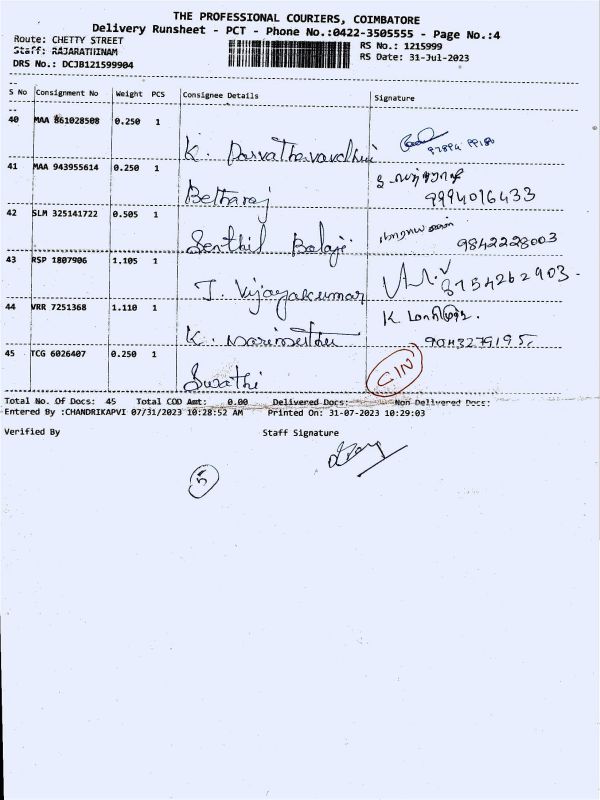 THE PROFESSIONAL COURIERS, COIMBATORE
Delivery Runsheet - PCT - Phone No.:0422-3505555 - Page No.:4
Route: CHETTY STREET
RS No.: 1215999
Staff: RAJARATHINAM
RS Date: 31-Jul-2023
DRS No.: DCJB121599904
S No Consignment No Weight PCS Consignee Details Signature
40 MAA 861028508 0.250 1
K. Parvathavardhini
41 MAA 943955614 0.250 1
Betharaj 9994016433
42 SLM 325141722 0.505 1
Senthil Balaje 9842228003
43 RSP 1807906 1.105 1
J. Vijayakumar 8754262903.
44 VRR 7251368 1.110 1
K. Marimuthu K. மாரிமுத்து. 9043279195
45 TCG 6026407 0.250 1
Swathi CIN
Total No. Of Docs: 45 Total COD Amt: 0.00 Delivered Docs: Non Delivered Docs:
Entered By :CHANDRIKAPVI 07/31/2023 10:28:52 AM Printed On: 31-07-2023 10:29:03
Verified By Staff Signature
5